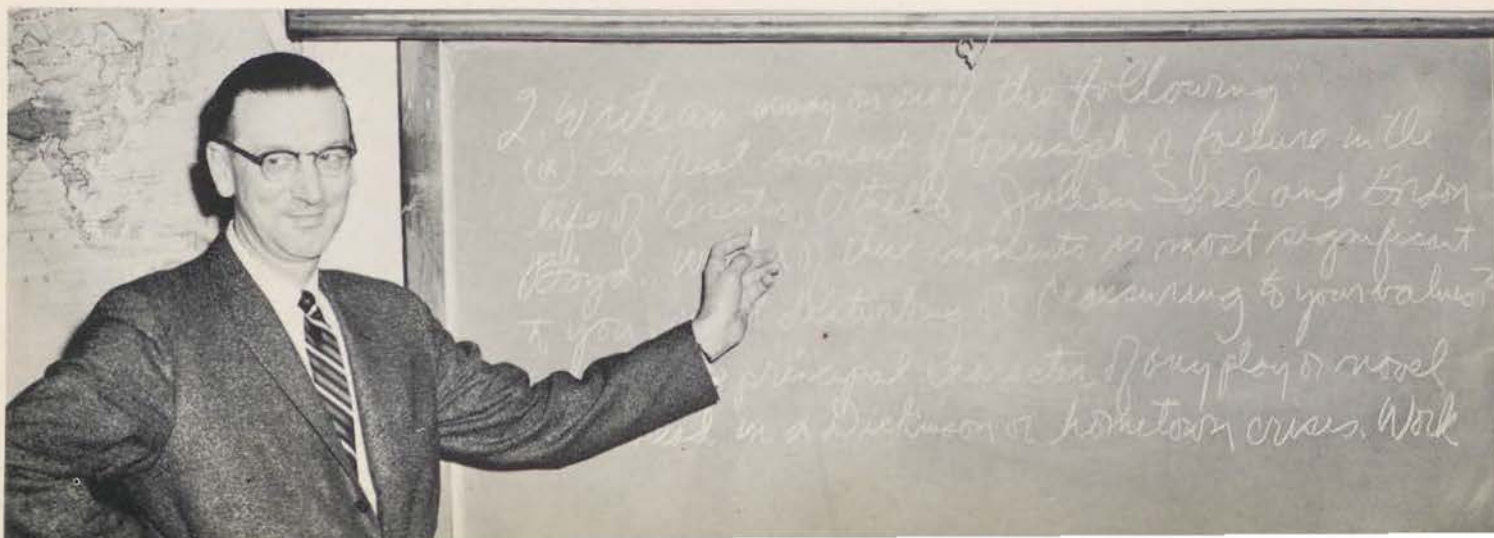 2. Write an essay on one of the following:
(a) The great moment of triumph or failure in the
life of Othello, Julien Sorel and
Boyd. these moments is most significant
to you disturbing or reassuring to your values?
principal character of any play or novel
in a Dickinson or hometown crises. Work